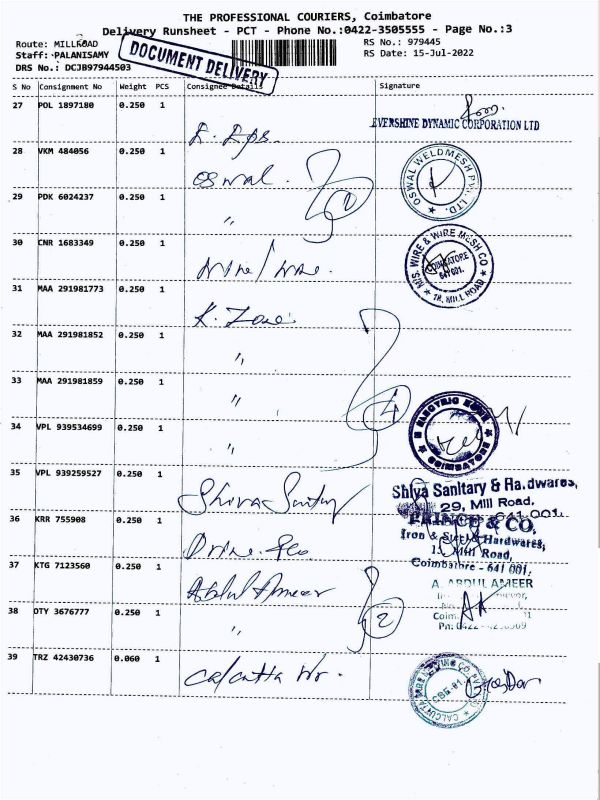 THE PROFESSIONAL COURIERS, Coimbatore
Delivery Runsheet - PCT - Phone No.:0422-3505555 - Page No.:3
Route: MILLROAD
RS No.: 979445
Staff: PALANISAMY
RS Date: 15-Jul-2022
DRS No.: DCJB97944503
DOCUMENT DELIVERY
S No Consignment No Weight PCS Consignee Details Signature
27 POL 1897180 0.250 1
EVERSHINE DYNAMIC CORPORATION LTD
28 VKM 484056 0.250 1 Oswal.
OSWAL WELDMESH PVT. LTD.
29 PDK 6024237 0.250 1 " 2
30 CNR 1683349 0.250 1
M/S. WIRE & WIRE MESH CO
COIMBATORE
641 001.
18, MILL ROAD
31 MAA 291981773 0.250 1 K. Zone
32 MAA 291981852 0.250 1 "
33 MAA 291981859 0.250 1 " 4
34 VPL 939534699 0.250 1 "
ELECTRIC
COIMBATORE
35 VPL 939259527 0.250 1 Shiva Sanitary
Shiva Sanitary & Hardwares,
29, Mill Road.
641 001.
36 KRR 755908 0.250 1
PRINCE & CO,
Iron & Steel & Hardwares,
Mill Road,
Coimbatore - 641 001,
37 KTG 7123560 0.250 1 Abdul Ameer
A. ABDUL AMEER
38 OTY 3676777 0.250 1 " 2
39 TRZ 42430736 0.060 1 Calcutta Wr.